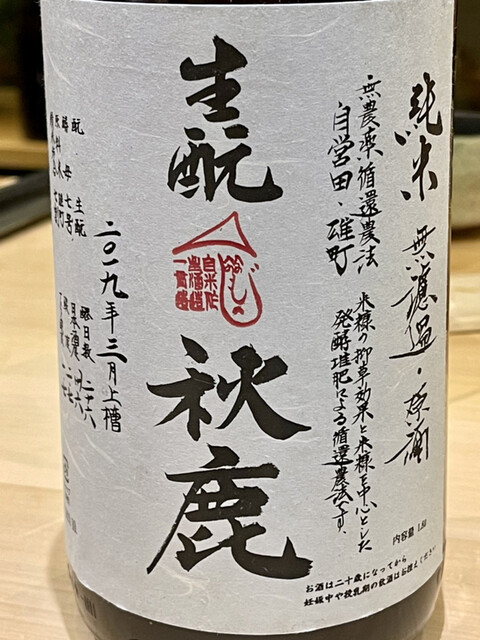 純米 無濾過・原酒
無農薬循環農法
自営田・雄町
米糠の抑草効果と米糠を中心とした
発酵堆肥による循環農法です。
生酛
秋鹿
二〇一九年三月上槽
内容量 1.8ℓ
お酒は二十歳になってから
妊娠中や授乳期の飲酒はお控えください